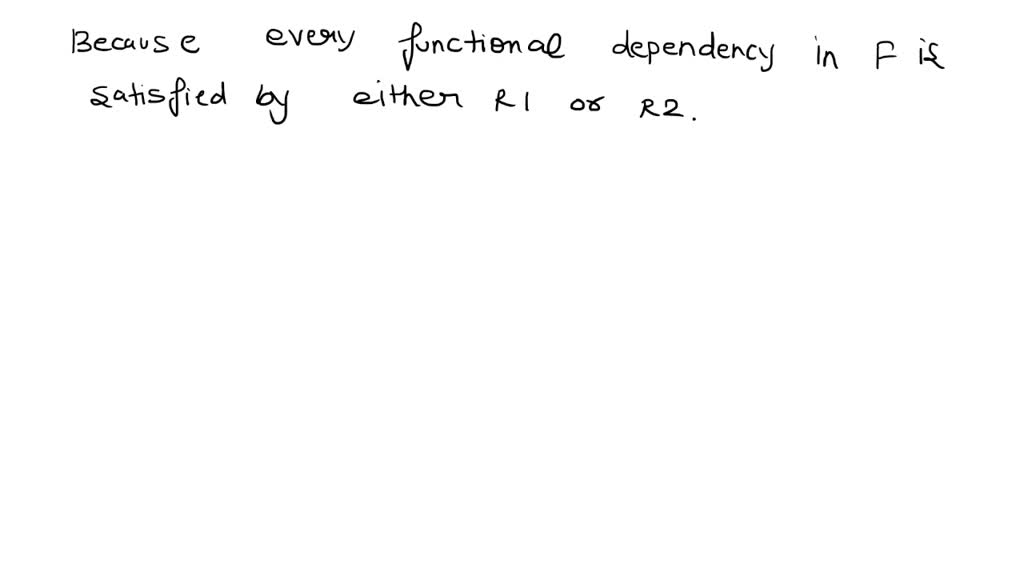 Because every functional dependency in F is
satisfied by either R1 or R2.